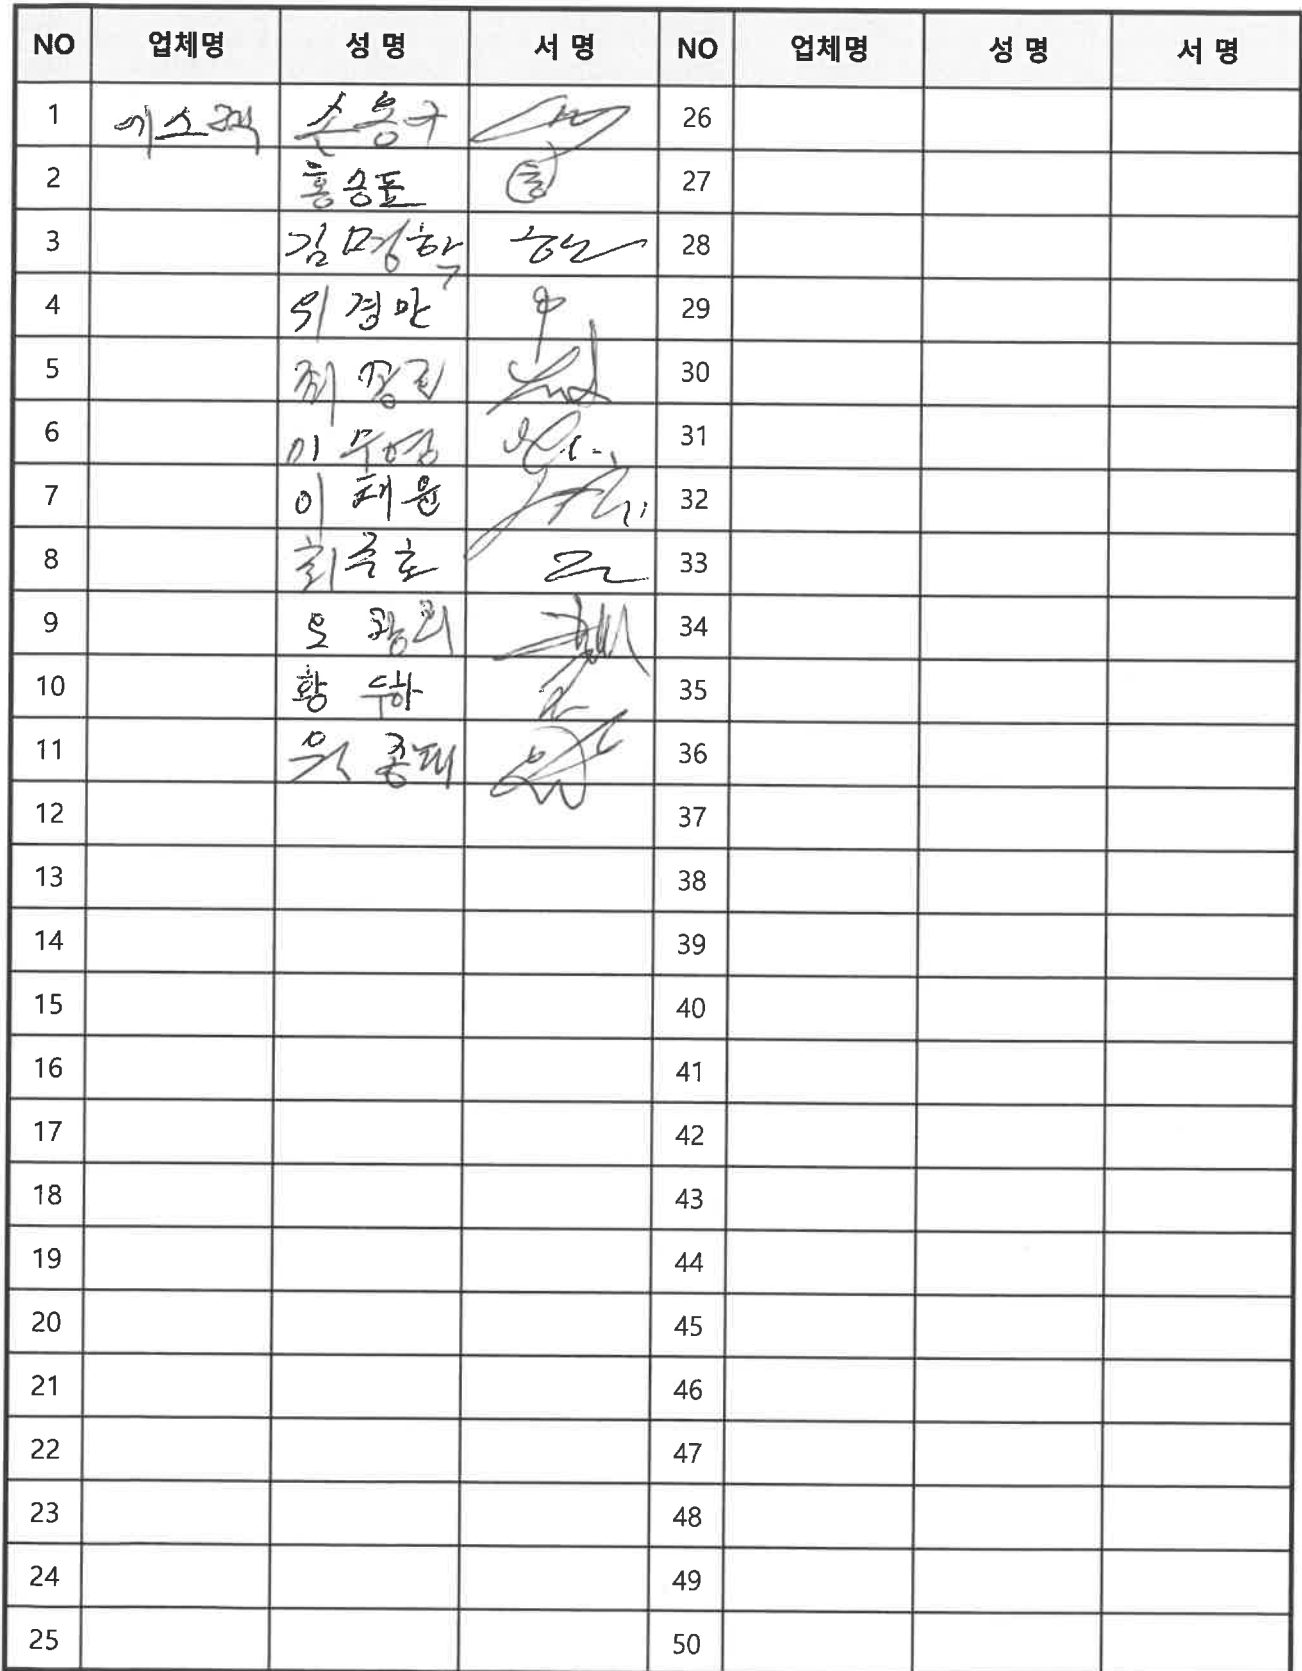 NO 업체명 성 명 서 명 NO 업체명 성 명 서 명
1 에스팩 손용구 26
2 홍승표 27
3 김명학 28
4 위경만 29
5 최경진 30
6 이무영 31
7 이태윤 32
8 최준호 33
9 오광희 34
10 황두하 35
11 종태 36
12 37
13 38
14 39
15 40
16 41
17 42
18 43
19 44
20 45
21 46
22 47
23 48
24 49
25 50